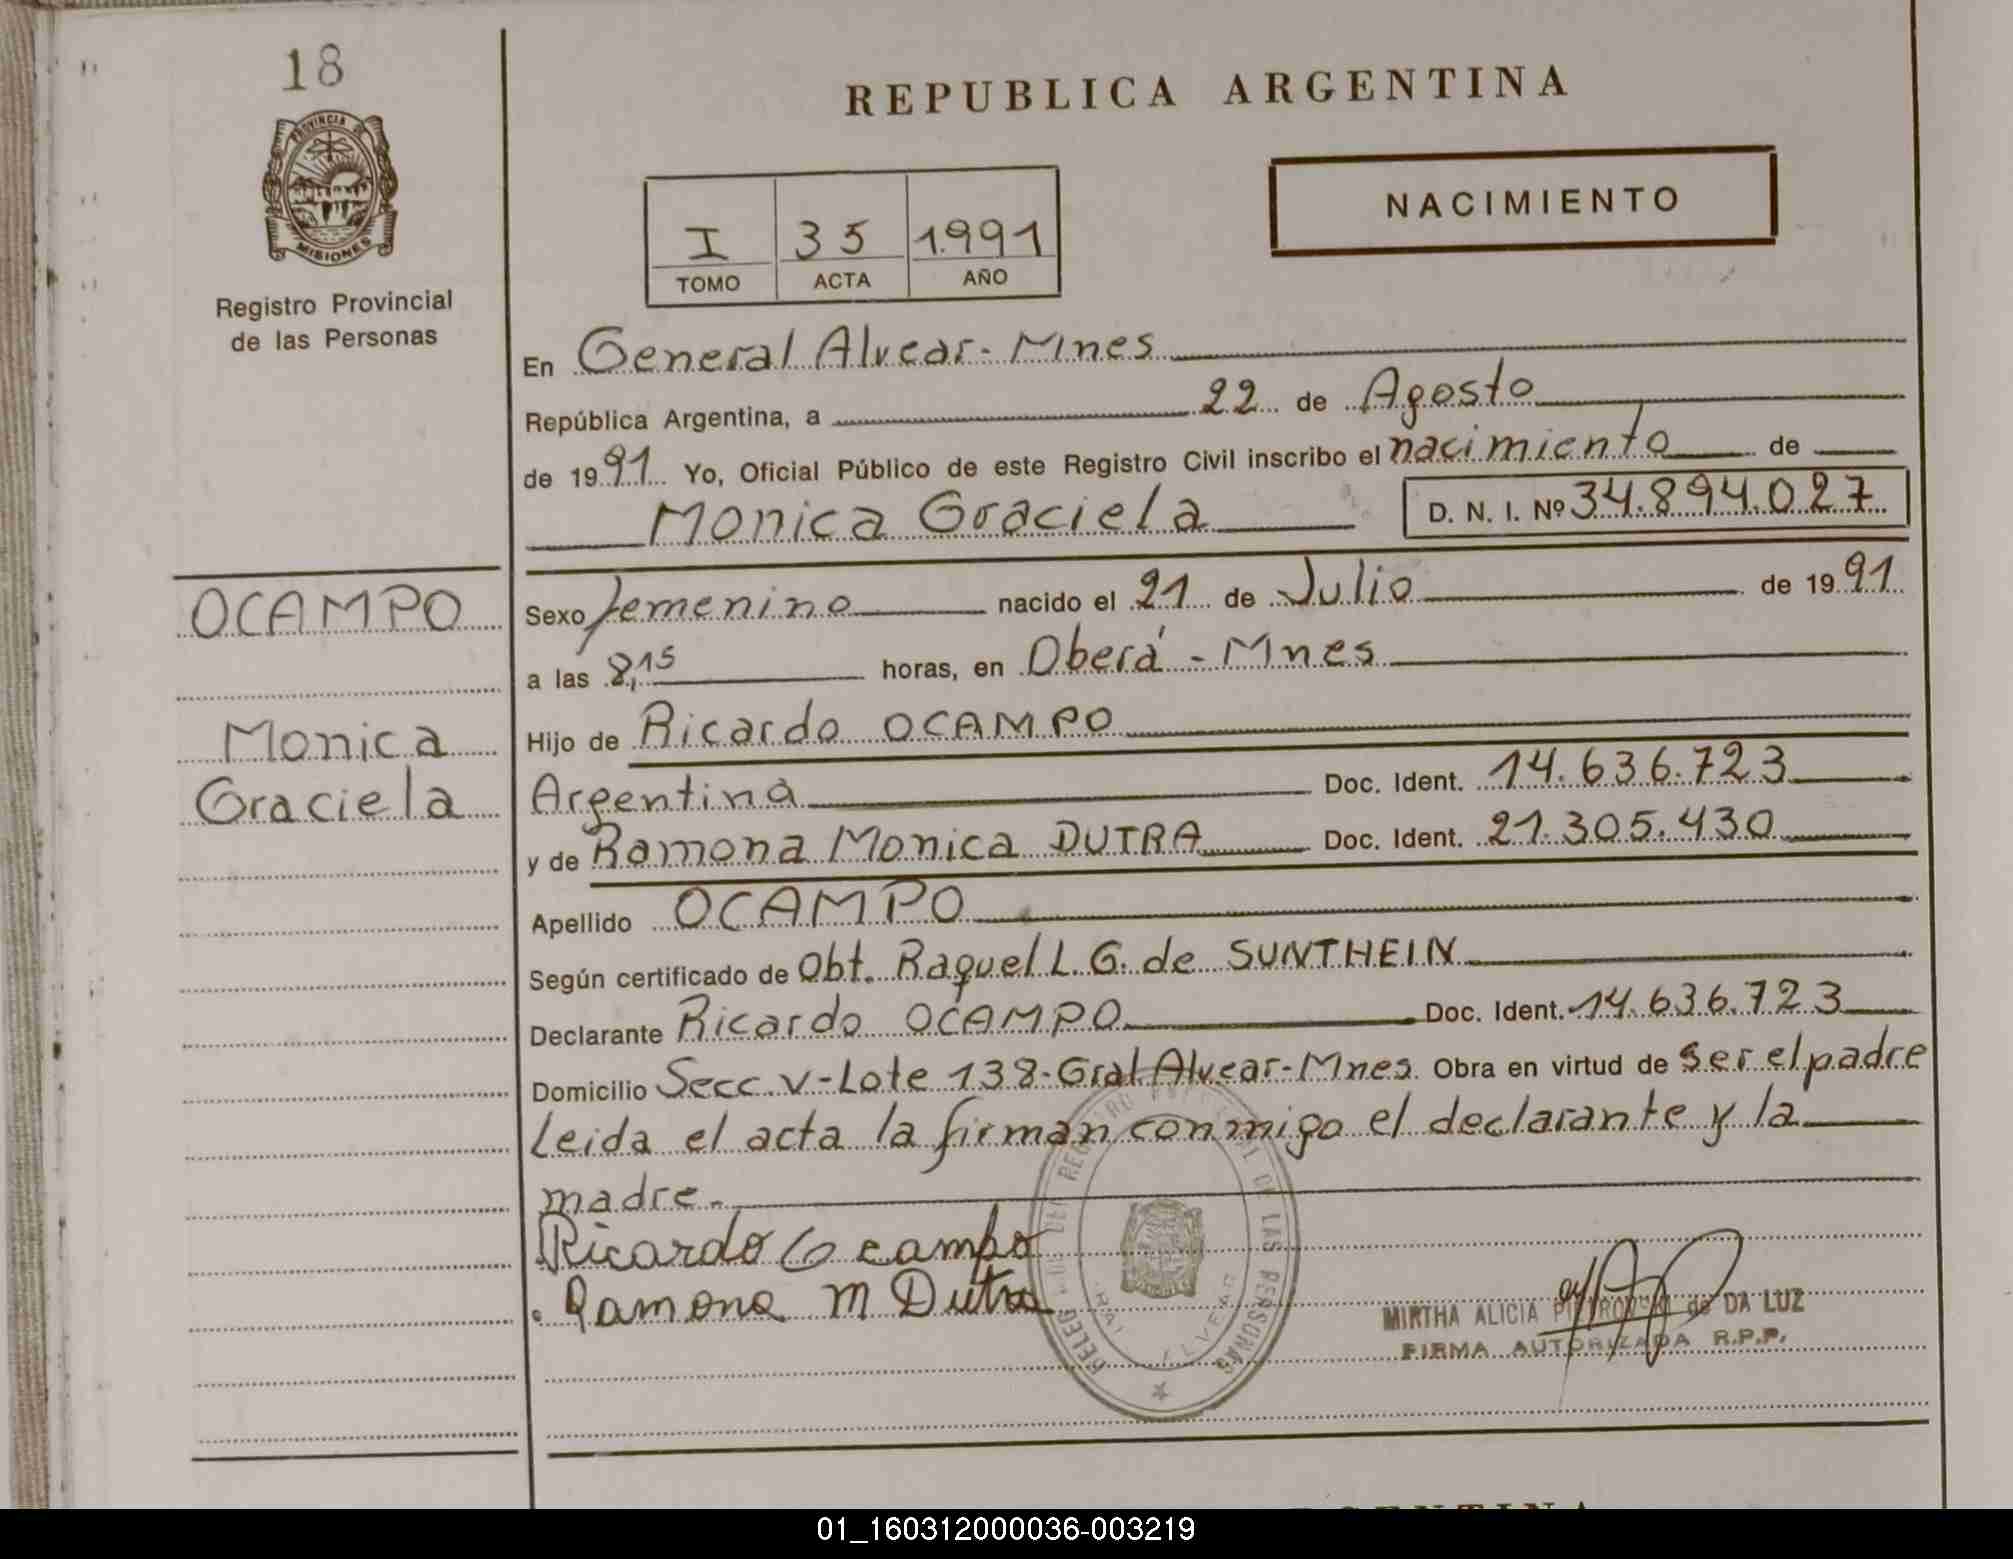 18
PROVINCIA DE
MISIONES
Registro Provincial
de las Personas
REPUBLICA ARGENTINA
NACIMIENTO
I 35 1.991
TOMO ACTA AÑO
En General Alvear - Mnes
República Argentina, a 22 de Agosto
de 1991 Yo, Oficial Público de este Registro Civil inscribo el nacimiento de
Monica Graciela D. N. I. Nº 34.894.027
OCAMPO
Monica
Graciela
Sexo femenino nacido el 21 de Julio de 1991
a las 8,15 horas, en Oberá - Mnes
Hijo de Ricardo OCAMPO
Argentina Doc. Ident. 14.636.723
y de Ramona Monica DUTRA Doc. Ident. 21.305.430
Apellido OCAMPO
Según certificado de Obt. Raquel L. G. de SUNTHEIN
Declarante Ricardo OCAMPO Doc. Ident. 14.636.723
Domicilio Secc. V - Lote 138 - Gral Alvear - Mnes Obra en virtud de ser el padre
Leida el acta la firman conmigo el declarante y la
madre.
Ricardo Ocampo
Ramona M Dutra
DE LAS PERSONAS
MIRTHA ALICIA de DA LUZ
FIRMA AUTORIZADA R.P.P.
01_160312000036-003219